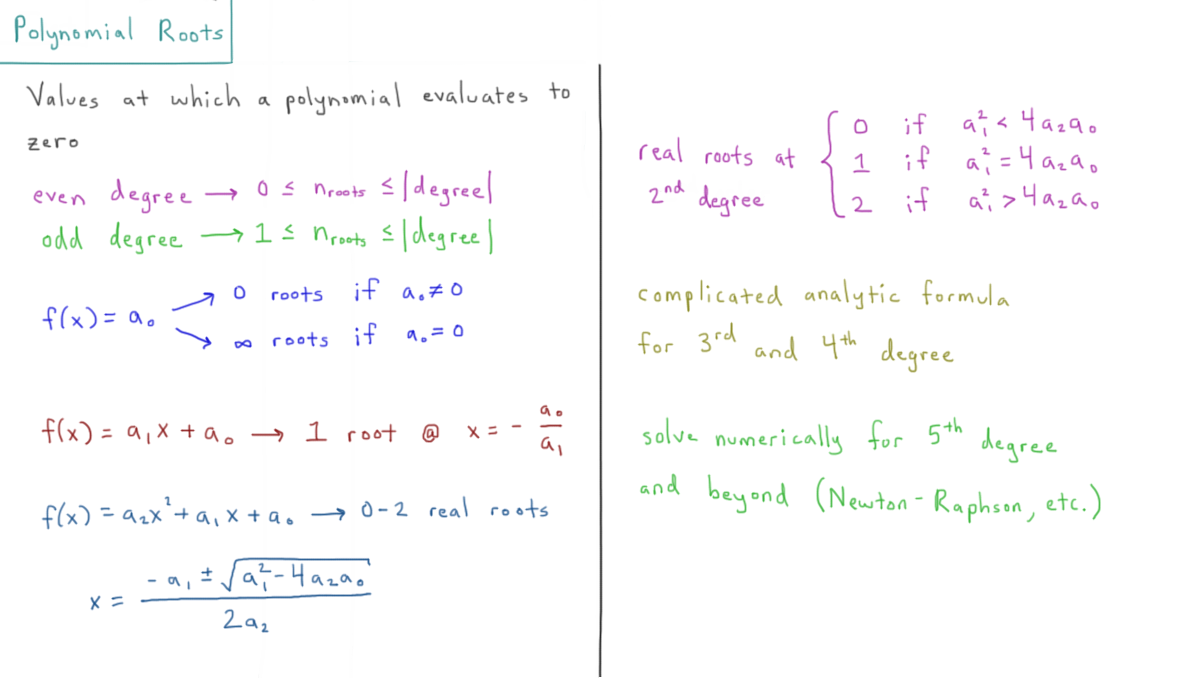 Polynomial Roots
Values at which a polynomial evaluates to
zero
even degree → 0 ≤ n_roots ≤ |degree|
odd degree → 1 ≤ n_roots ≤ |degree|
f(x) = a₀
↗ 0 roots if a₀ ≠ 0
↘ ∞ roots if a₀ = 0
f(x) = a₁x + a₀ → 1 root @ x = - a₀/a₁
f(x) = a₂x² + a₁x + a₀ → 0-2 real roots
x = (-a₁ ± √(a₁² - 4a₂a₀)) / 2a₂
real roots at
2nd degree
{ 0 if a₁² < 4a₂a₀
1 if a₁² = 4a₂a₀
2 if a₁² > 4a₂a₀
complicated analytic formula
for 3rd and 4th degree
solve numerically for 5th degree
and beyond (Newton-Raphson, etc.)